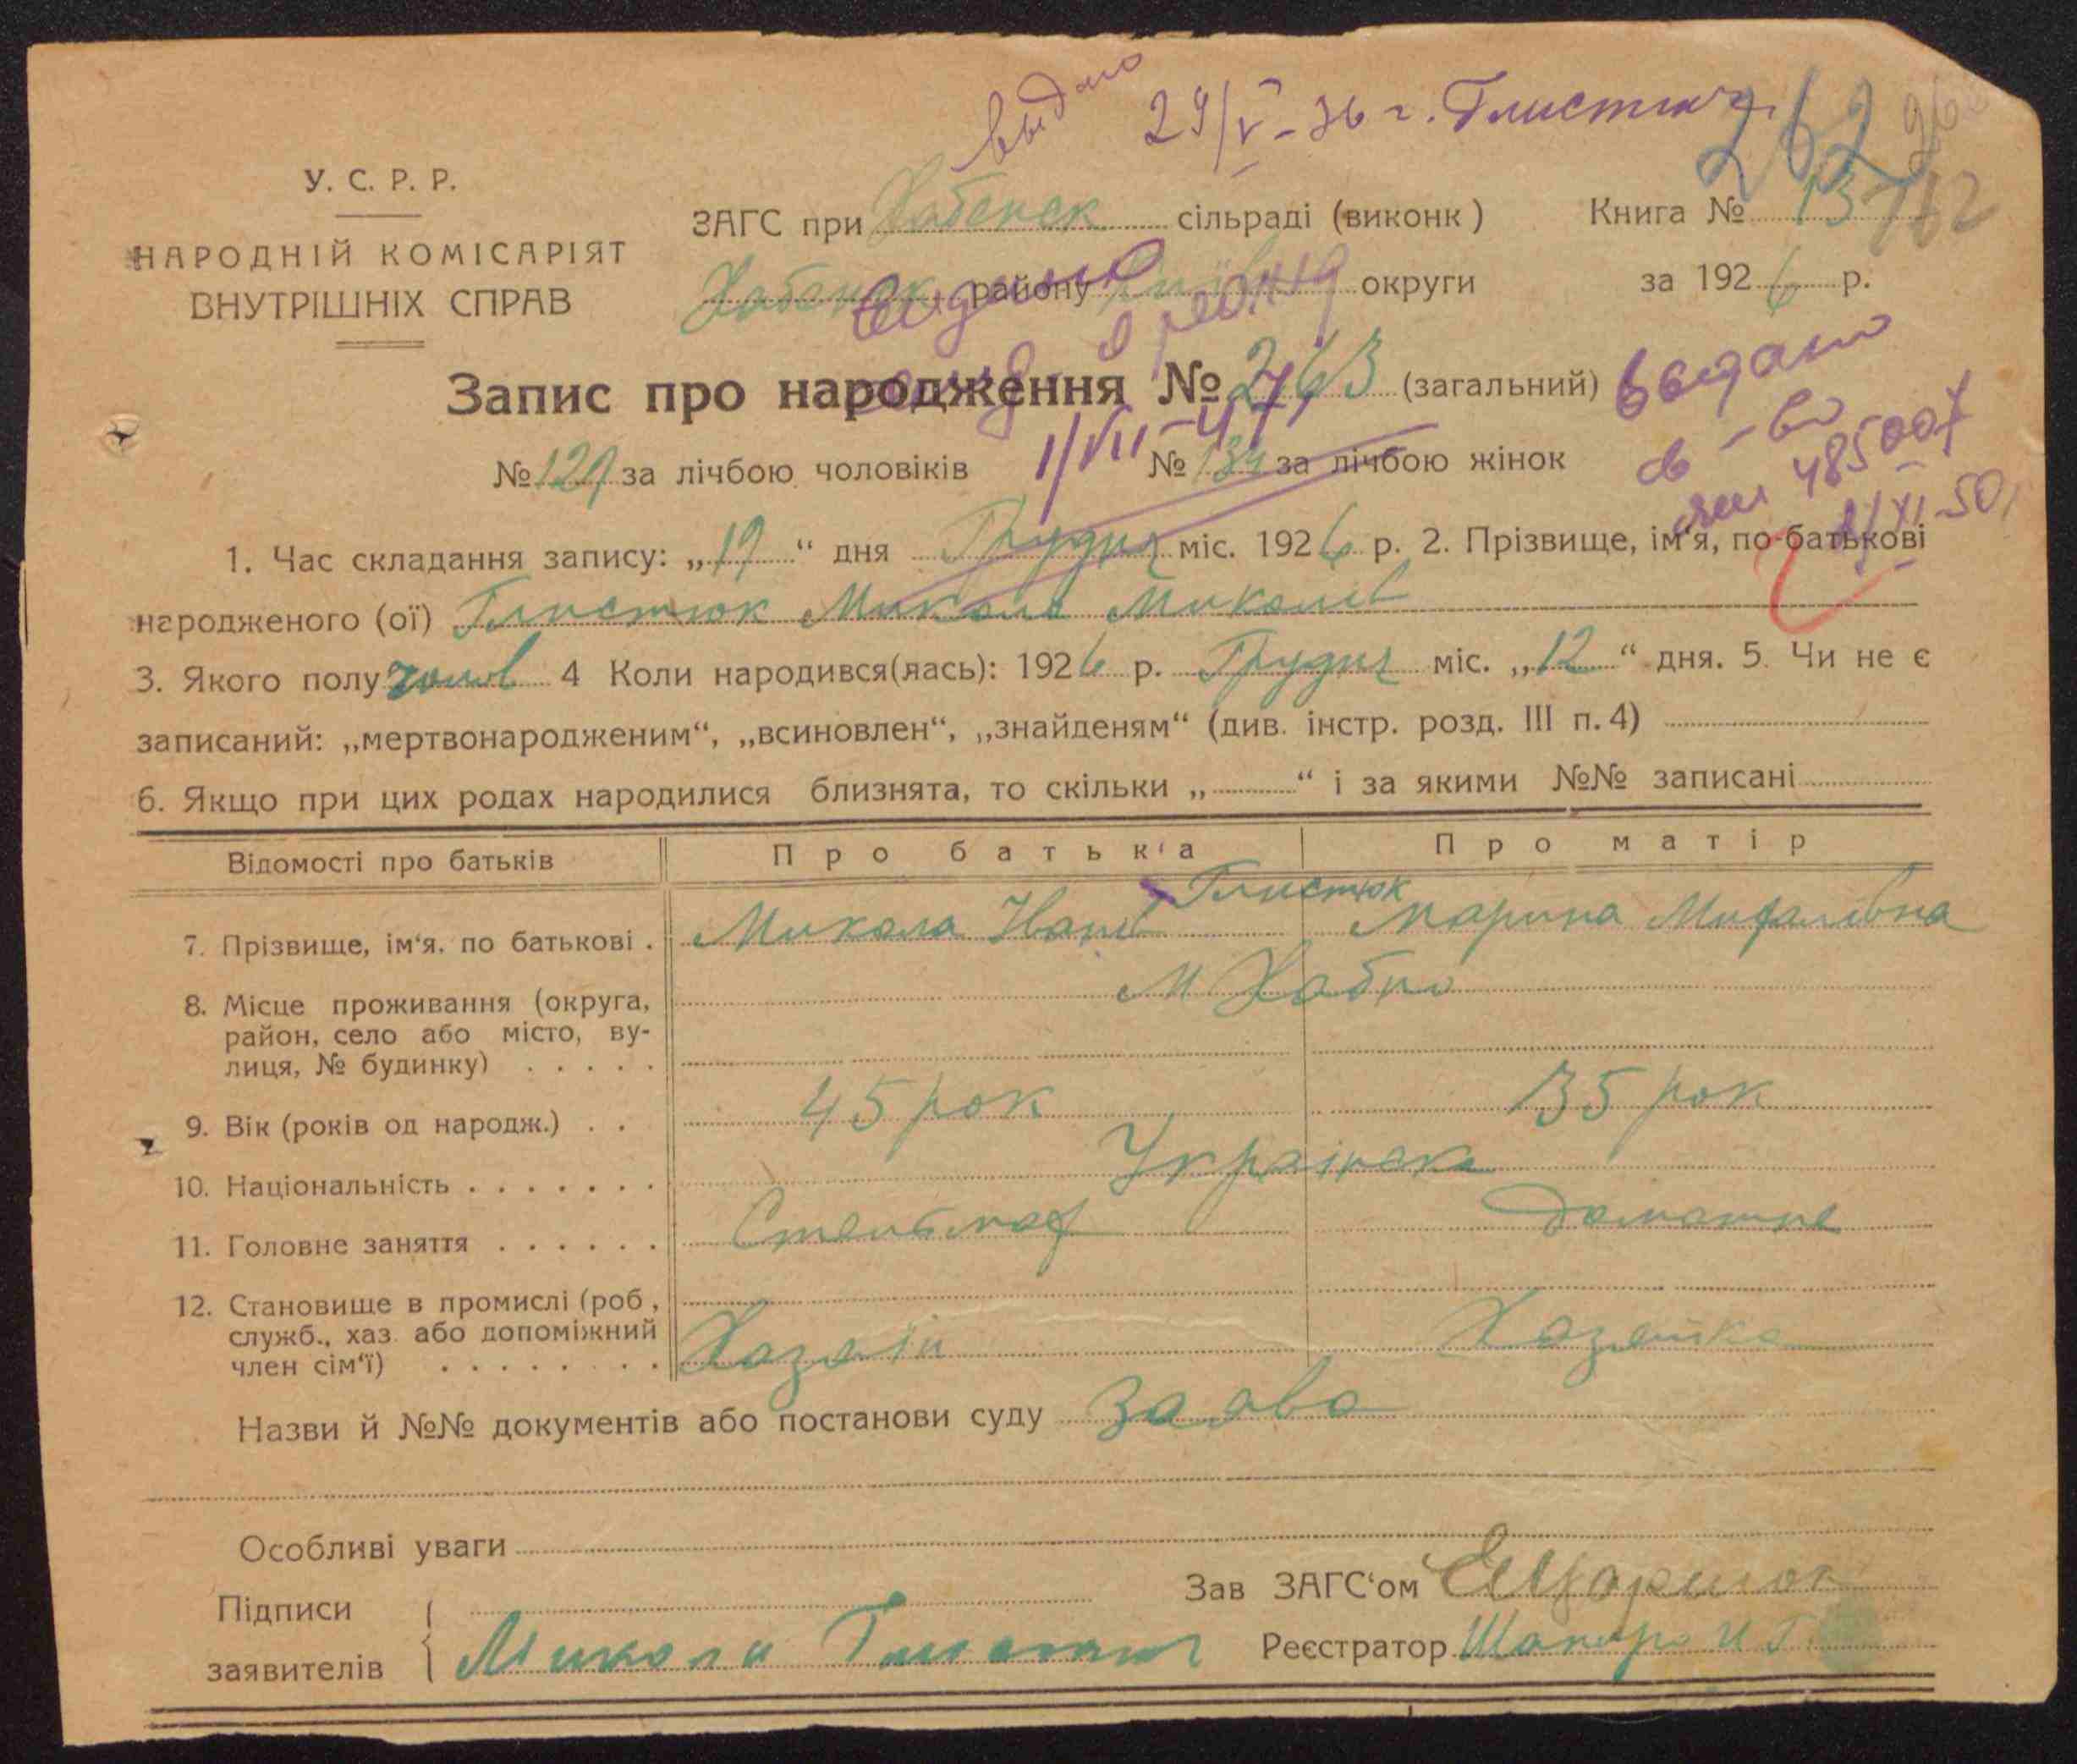 выдано 29/V-36 г. Глистюк
262
У. С. Р. Р.
НАРОДНІЙ КОМІСАРІЯТ
ВНУТРІШНІХ СПРАВ
ЗАГС при Хабенск сільраді (виконк)
Книга № 13 162
Хабенск району округи
за 1926 р.
Запис про народження № 263 (загальний)
1/VII-47
видано
св-во
485007
XI-50
№ 129 за лічбою чоловіків № 134 за лічбою жінок
1. Час складання запису: „19“ дня Грудня міс. 1926 р. 2. Прізвище, ім'я, по-батькові
народженого (ої) Глистюк Микола Миколів
3. Якого полу чолов 4 Коли народився(лась): 1926 р. Грудня міс. „12“ дня. 5. Чи не є
записаний: „мертвонародженим“, „всиновлен“, „знайденям“ (див. інстр. розд. III п. 4)
6. Якщо при цих родах народилися близнята, то скільки „ “ і за якими №№ записані
Відомості про батьків
Про батька
Про матір
7. Прізвище, ім'я, по батькові .
Глистюк
Микола Іванів
Марина Михалівна
8. Місце проживання (округа,
район, село або місто, ву-
лиця, № будинку) . . . . .
М Хабно
9. Вік (років од народж.) . .
45 рок
35 рок
10. Національність . . . . . . .
Українска
11. Головне заняття . . . . . .
Стельмах
Домашне
12. Становище в промислі (роб,
служб., хаз. або допоміжний
член сім'ї) . . . . . . . .
Хазяїн
Хазяйка
Назви й №№ документів або постанови суду Заява
Особливі уваги
Підписи
заявителів
Микола Глистюк
Зав ЗАГС'ом
Реєстратор